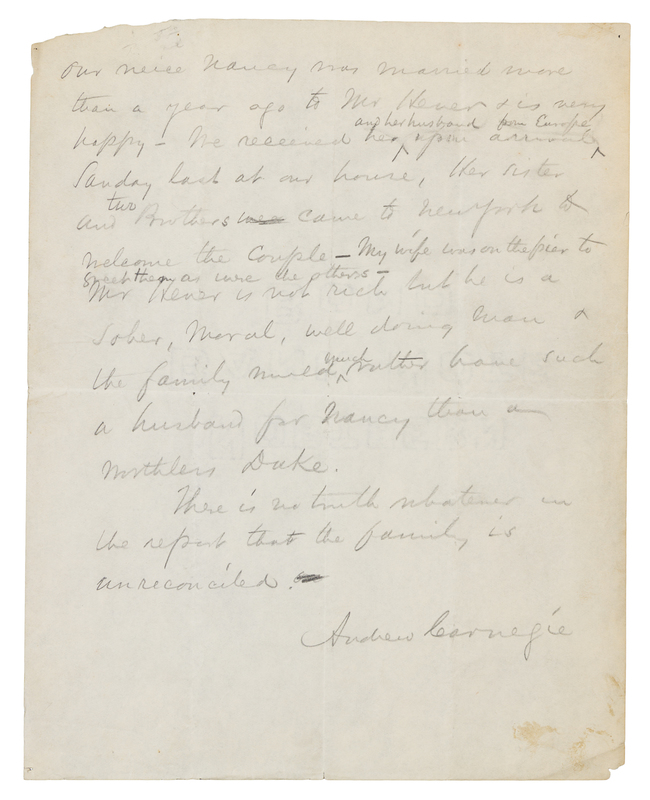 Our neice Nancy was married more
than a year ago to Mr Hever & is very
and her husband from Europe
happy — We received her upon arrival
Sunday last at our house, Her sister
two
and Brothers were came to New York to
welcome the Couple — My wife was on the pier to
greet them as were the others —
Mr Hever is not rich but he is a
Sober, Moral, well doing Man &
much
the family would rather have such
a husband for Nancy than a
worthless Duke.
There is no truth whatever in
the report that the family is
unreconciled.
Andrew Carnegie